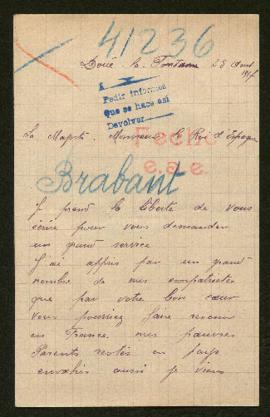 41236
Doué la Fontaine 25 Aout
1917
A
Pedir informes
Que se hace asi
Devolver
Sa Majesté Monsieur le Roi d'Espagne
Fecho
e.s.e.
Brabant
Je prend la liberté de vous
écrire pour vous demander
un grand service
J'ai appris par un grand
nombre de mes compatriotes
que par votre bon cœur
vous pourriez faire revenir
en France mes pauvres
Parents restés en pays
envahis aussi je viens